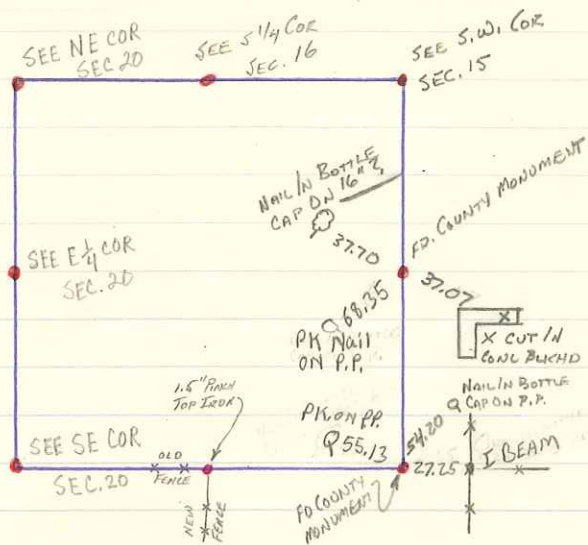 SEE NE COR
SEC. 20
SEE S 1/4 COR
SEC. 16
SEE S.W. COR
SEC. 15
NAIL IN BOTTLE
CAP ON 16"
37.70
FD. COUNTY MONUMENT
SEE E 1/4 COR
SEC. 20
68.35
37.07
PK Nail
ON P.P.
X CUT IN
CONC BLKHD
1.5" PINCH
TOP IRON
PK ON P.P.
55.13
NAIL IN BOTTLE
CAP ON P.P.
54.20
SEE SE COR
SEC. 20
OLD
FENCE
27.25
I BEAM
NEW
FENCE
FD COUNTY
MONUMENT